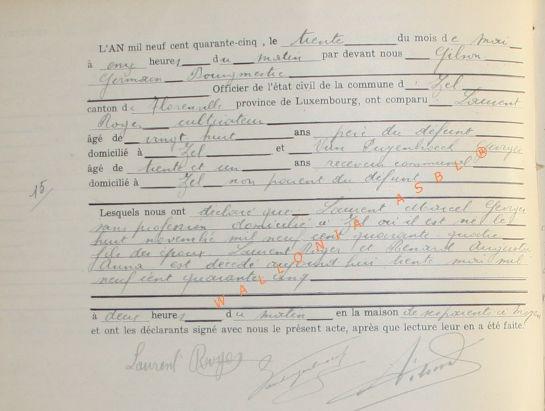 L'AN mil neuf cent quarante-cinq, le trente du mois de mai
à onze heures du matin par devant nous Gilson
Germain Bourgmestre
Officier de l'état civil de la commune d
canton de Florenville province de Luxembourg, ont comparu: Laurent
Roger cultivateur
âgé de vingt huit ans père du défunt
domicilié à et Van
âgé de trente et un ans receveur communal
domicilié à non parent du défunt
15
Lesquels nous ont déclaré que Laurent Marcel Georges
sans profession domicilié à où il est né le
huit novembre mil neuf cent quarante quatre
fils des époux Laurent Roger et Renard Augustine
Anna est décédé aujourd'hui trente mai mil
neuf cent quarante cinq
à deux heures du matin en la maison de ses parents à
et ont les déclarants signé avec nous le présent acte, après que lecture leur en a été faite.
Laurent Roger
Gilson
WALLONIA ASBL ®